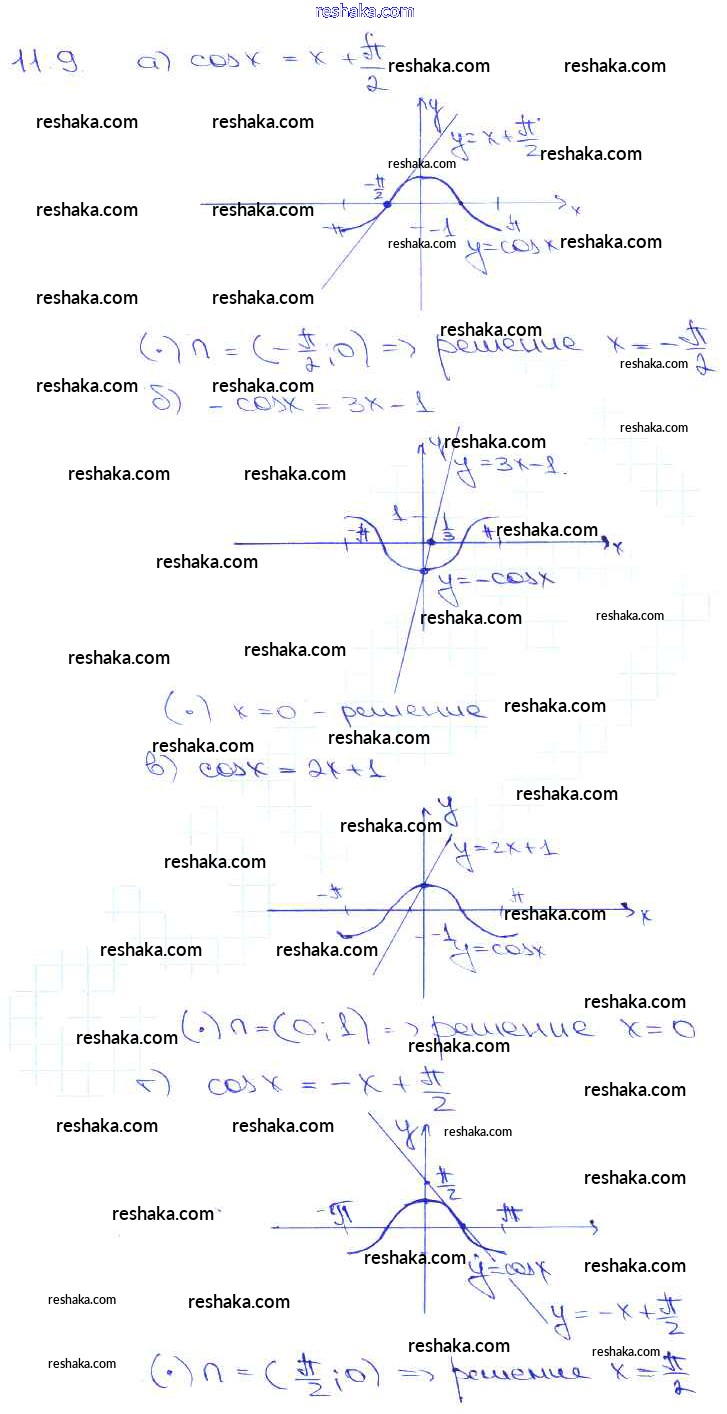 reshaka.com
11.9. а) cosx = x + π/2 reshaka.com reshaka.com
reshaka.com reshaka.com y
y = x + π/2
reshaka.com reshaka.com
-π/2
reshaka.com reshaka.com x
-π -1 π
reshaka.com y = cosx reshaka.com
reshaka.com reshaka.com
reshaka.com
(·) П = (-π/2; 0) => решение x = -π/2
reshaka.com
reshaka.com reshaka.com
б) -cosx = 3x-1
reshaka.com
y reshaka.com
y = 3x-1.
reshaka.com reshaka.com
1 1/3
-π π reshaka.com
x
reshaka.com
y = -cosx
reshaka.com reshaka.com
reshaka.com reshaka.com
(·) x=0 - решение reshaka.com
reshaka.com reshaka.com
в) cosx = 2x+1
reshaka.com
y
reshaka.com
y = 2x+1
reshaka.com
-π π
reshaka.com x
-1
reshaka.com reshaka.com y = cosx
reshaka.com
(·) П = (0; 1) => решение x = 0
reshaka.com reshaka.com
г) cosx = -x + π/2
reshaka.com
reshaka.com reshaka.com y reshaka.com
π/2
reshaka.com
reshaka.com -π π
reshaka.com y = cosx reshaka.com
reshaka.com reshaka.com
y = -x + π/2
reshaka.com reshaka.com
reshaka.com
(·) П = (π/2; 0) => решение x = π/2